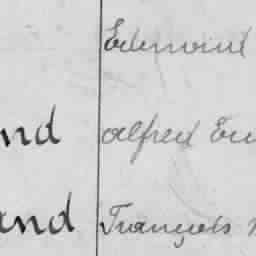 Edmond
nd Alfred Eu
and François